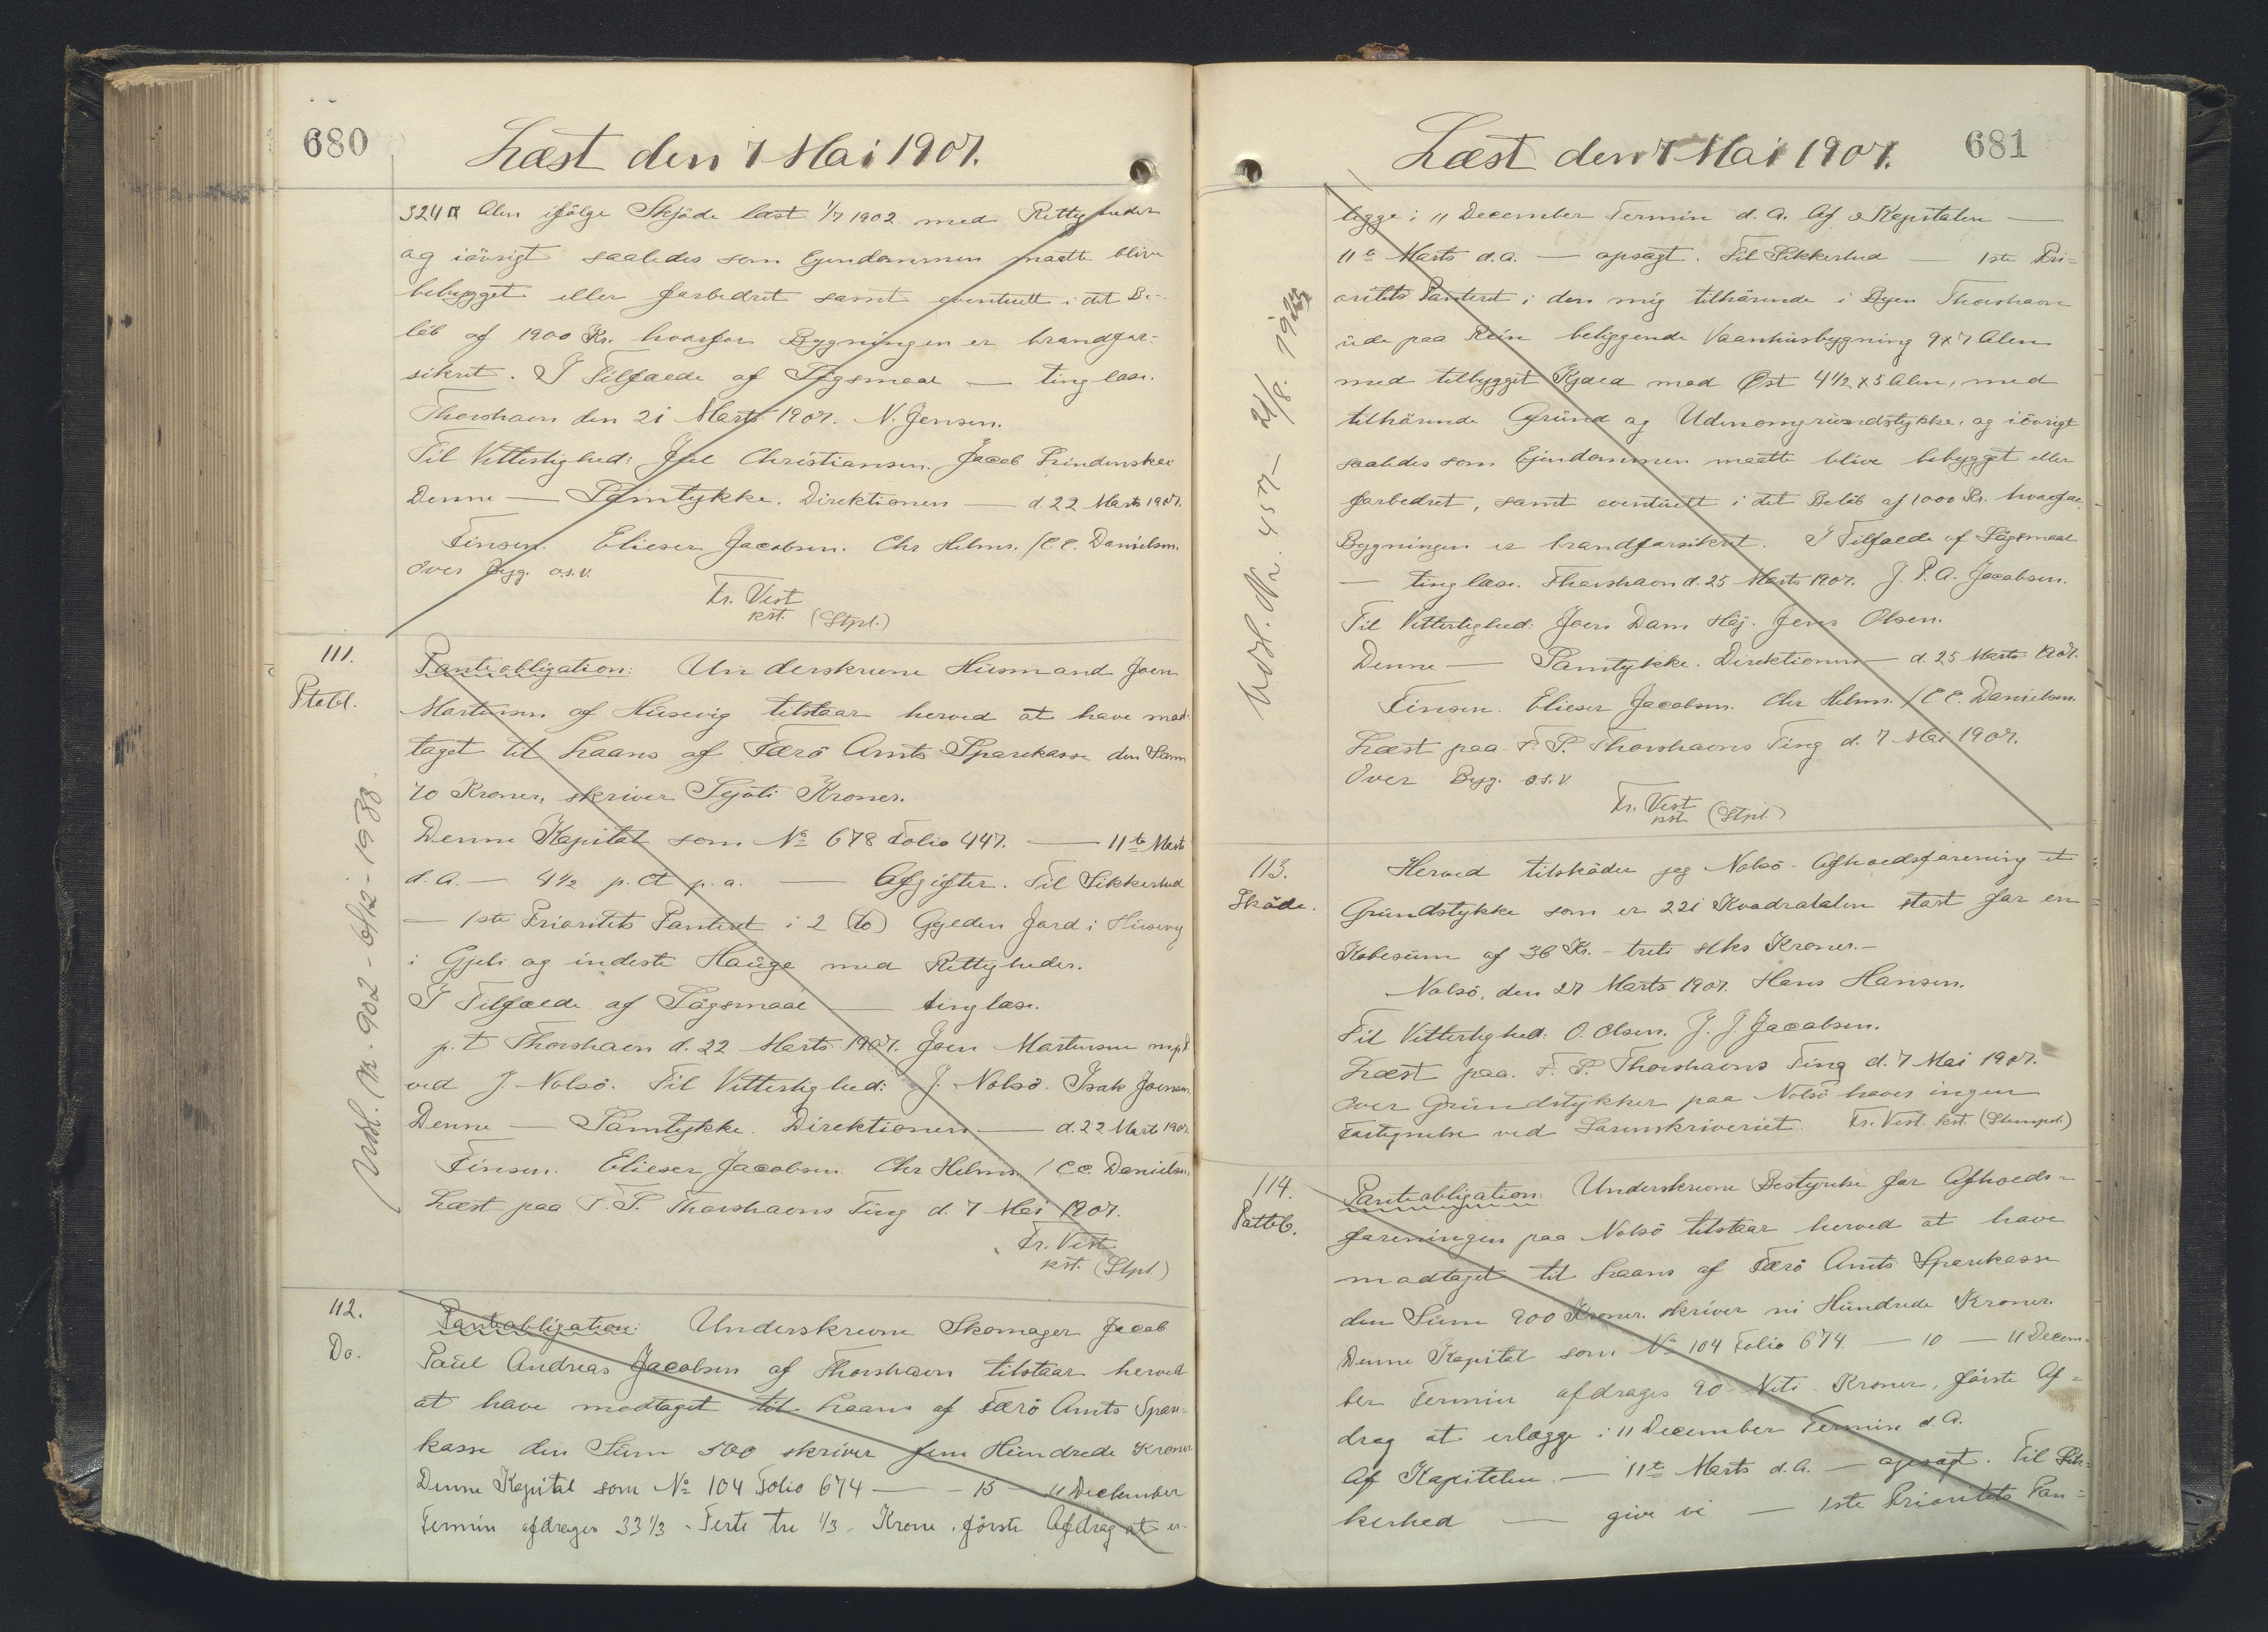 680
Læst den 7 Mai 1907.
324 □ Alen ifölge Skjöde læst 1/7 1902 med Rettigheder
og iövrigt saaledes som Ejendommen maatte blive
bebygget eller forbedret samt eventuelt i det Be-
löb af 1900 Kr. hvorfor Bygningen er brandfor-
sikret. I Tilfælde af Sögsmaal — tinglæse.
Thorshavn den 21 Marts 1907. N. Jensen.
Til Vitterlighed: Juul Christiansen. Jacob Lindenskov
Denne — Samtykke. Direktionen — d. 22 Marts 1907.
Finsen. Elieser Jacobsen. Chr Helms. /C.C. Danielsen.
Over Byg. o.s.v.
Fr. Vest
kst. (Stpl.)
111.
Ptobl.
Panteobligation: Underskrevne Husmand Joen
Martensen af Husevig tilstaar herved at have mod-
taget til Laans af Færö Amts Sparekasse den Sum
70 Kroner, skriver Syvti Kroner.
Denne Kapital som № 678 Folio 447. — 11te Marts
d.A. — 4½ p. Ct p. a. — Afgifter. Til Sikkerhed
— 1ste Prioritets Panteret i 2 (to) Gylden Jord i Husevig
i Gjeli og inderste Hauge med Rettigheder.
I Tilfælde af Sögsmaal — tinglæse.
p.t Thorshavn d. 22 Marts 1907. Joen Martensen m.p.
ved J. Nolsö. Til Vitterlighed: J. Nolsö. Isak Joensen.
Denne — Samtykke. Direktionen — d. 22 Marts 1907.
Finsen. Elieser Jacobsen. Chr Helms. / C.C. Danielsen.
Læst paa F. S. Thorshavns Ting d. 7 Mai 1907.
Fr. Vest
kst. (Stpl)
Udsl. Nr. 902 - 6/12 - 1938.
112.
Do.
Panteobligation: Underskrevne Skomager Jacob
Paul Andreas Jacobsen af Thorshavn tilstaar herved
at have modtaget til Laans af Færö Amts Spare-
kasse den Sum 500 skriver fem Hundrede Kroner.
Denne Kapital som № 104 Folio 674 — - 15 - 11 December
Termin afdrages 33 1/3 - Treti tre 1/3 - Krone, förste Afdrag at er-
681
Læst den 7 Mai 1907.
lægge i 11 December Termin d.A. Af Kapitalen —
11te Marts d.A. — opsagt. Til Sikkerhed — 1ste Pri-
oritets Panteret i den mig tilhörende i Byen Thorshavn
ude paa Rein beliggende Vaanhusbygning 9x7 Alen
med tilbygget Kjæld mod Øst 4½ x 5 Alen, med
tilhörende Grund og Udenomgrundstykke, og iövrigt
saaledes som Ejendommen maatte blive bebygget eller
forbedret, samt eventuelt i det Belöb af 1000 Kr. hvorfor
Bygningen er brandforsikret. I Tilfælde af Sögsmaal
— tinglæse. Thorshavn d. 25 Marts 1907. J. P. A. Jacobsen.
Til Vitterlighed: Joen Dam Höj. Jens Olsen.
Denne — Samtykke. Direktionen — d. 25 Marts 1907.
Finsen. Elieser Jacobsen. Chr Helms. /C.C. Danielsen.
Læst paa F. S. Thorshavns Ting d. 7 Mai 1907.
Over Byg. o.s.v
Fr. Vest
kst. (Stpl.)
Udsl. Nr. 457 - 21/8.
113.
Sköde.
Herved tilsköder jeg Nolsö Afholdsforening et
Grundstykke som er 221 Kvadratalen stort for en
Köbesum af 36 Kr. - treti seks Kroner. -
Nolsö, den 27 Marts 1907. Hans Hansen.
Til Vitterlighed: O. Olsen. J. J. Jacobsen.
Læst paa. F. S. Thorshavns Ting d. 7 Mai 1907.
Over Grundstykker paa Nolsö haves ingen
Fortegnelse ved Sorenskriveriet. Fr. Vest. kst. (Stempel)
114.
Panteobligation: Underskrevne Bestyrelse for Afholds-
foreningen paa Nolsö tilstaar herved at have
modtaget til Laans af Færö Amts Sparekasse
den Sum 900 Kroner. skriver ni Hundrede Kroner.
Denne Kapital som № 104 Folio 674. — 10 — 11 Decem-
ber Termin afdrages 90 - Niti - Kroner, förste Af-
drag at erlægge i 11 December Termin d.A.
Af Kapitalen — 11te Marts d.A. — opsagt. Til Sik-
kerhed — give vi — 1ste Prioritets Pan-